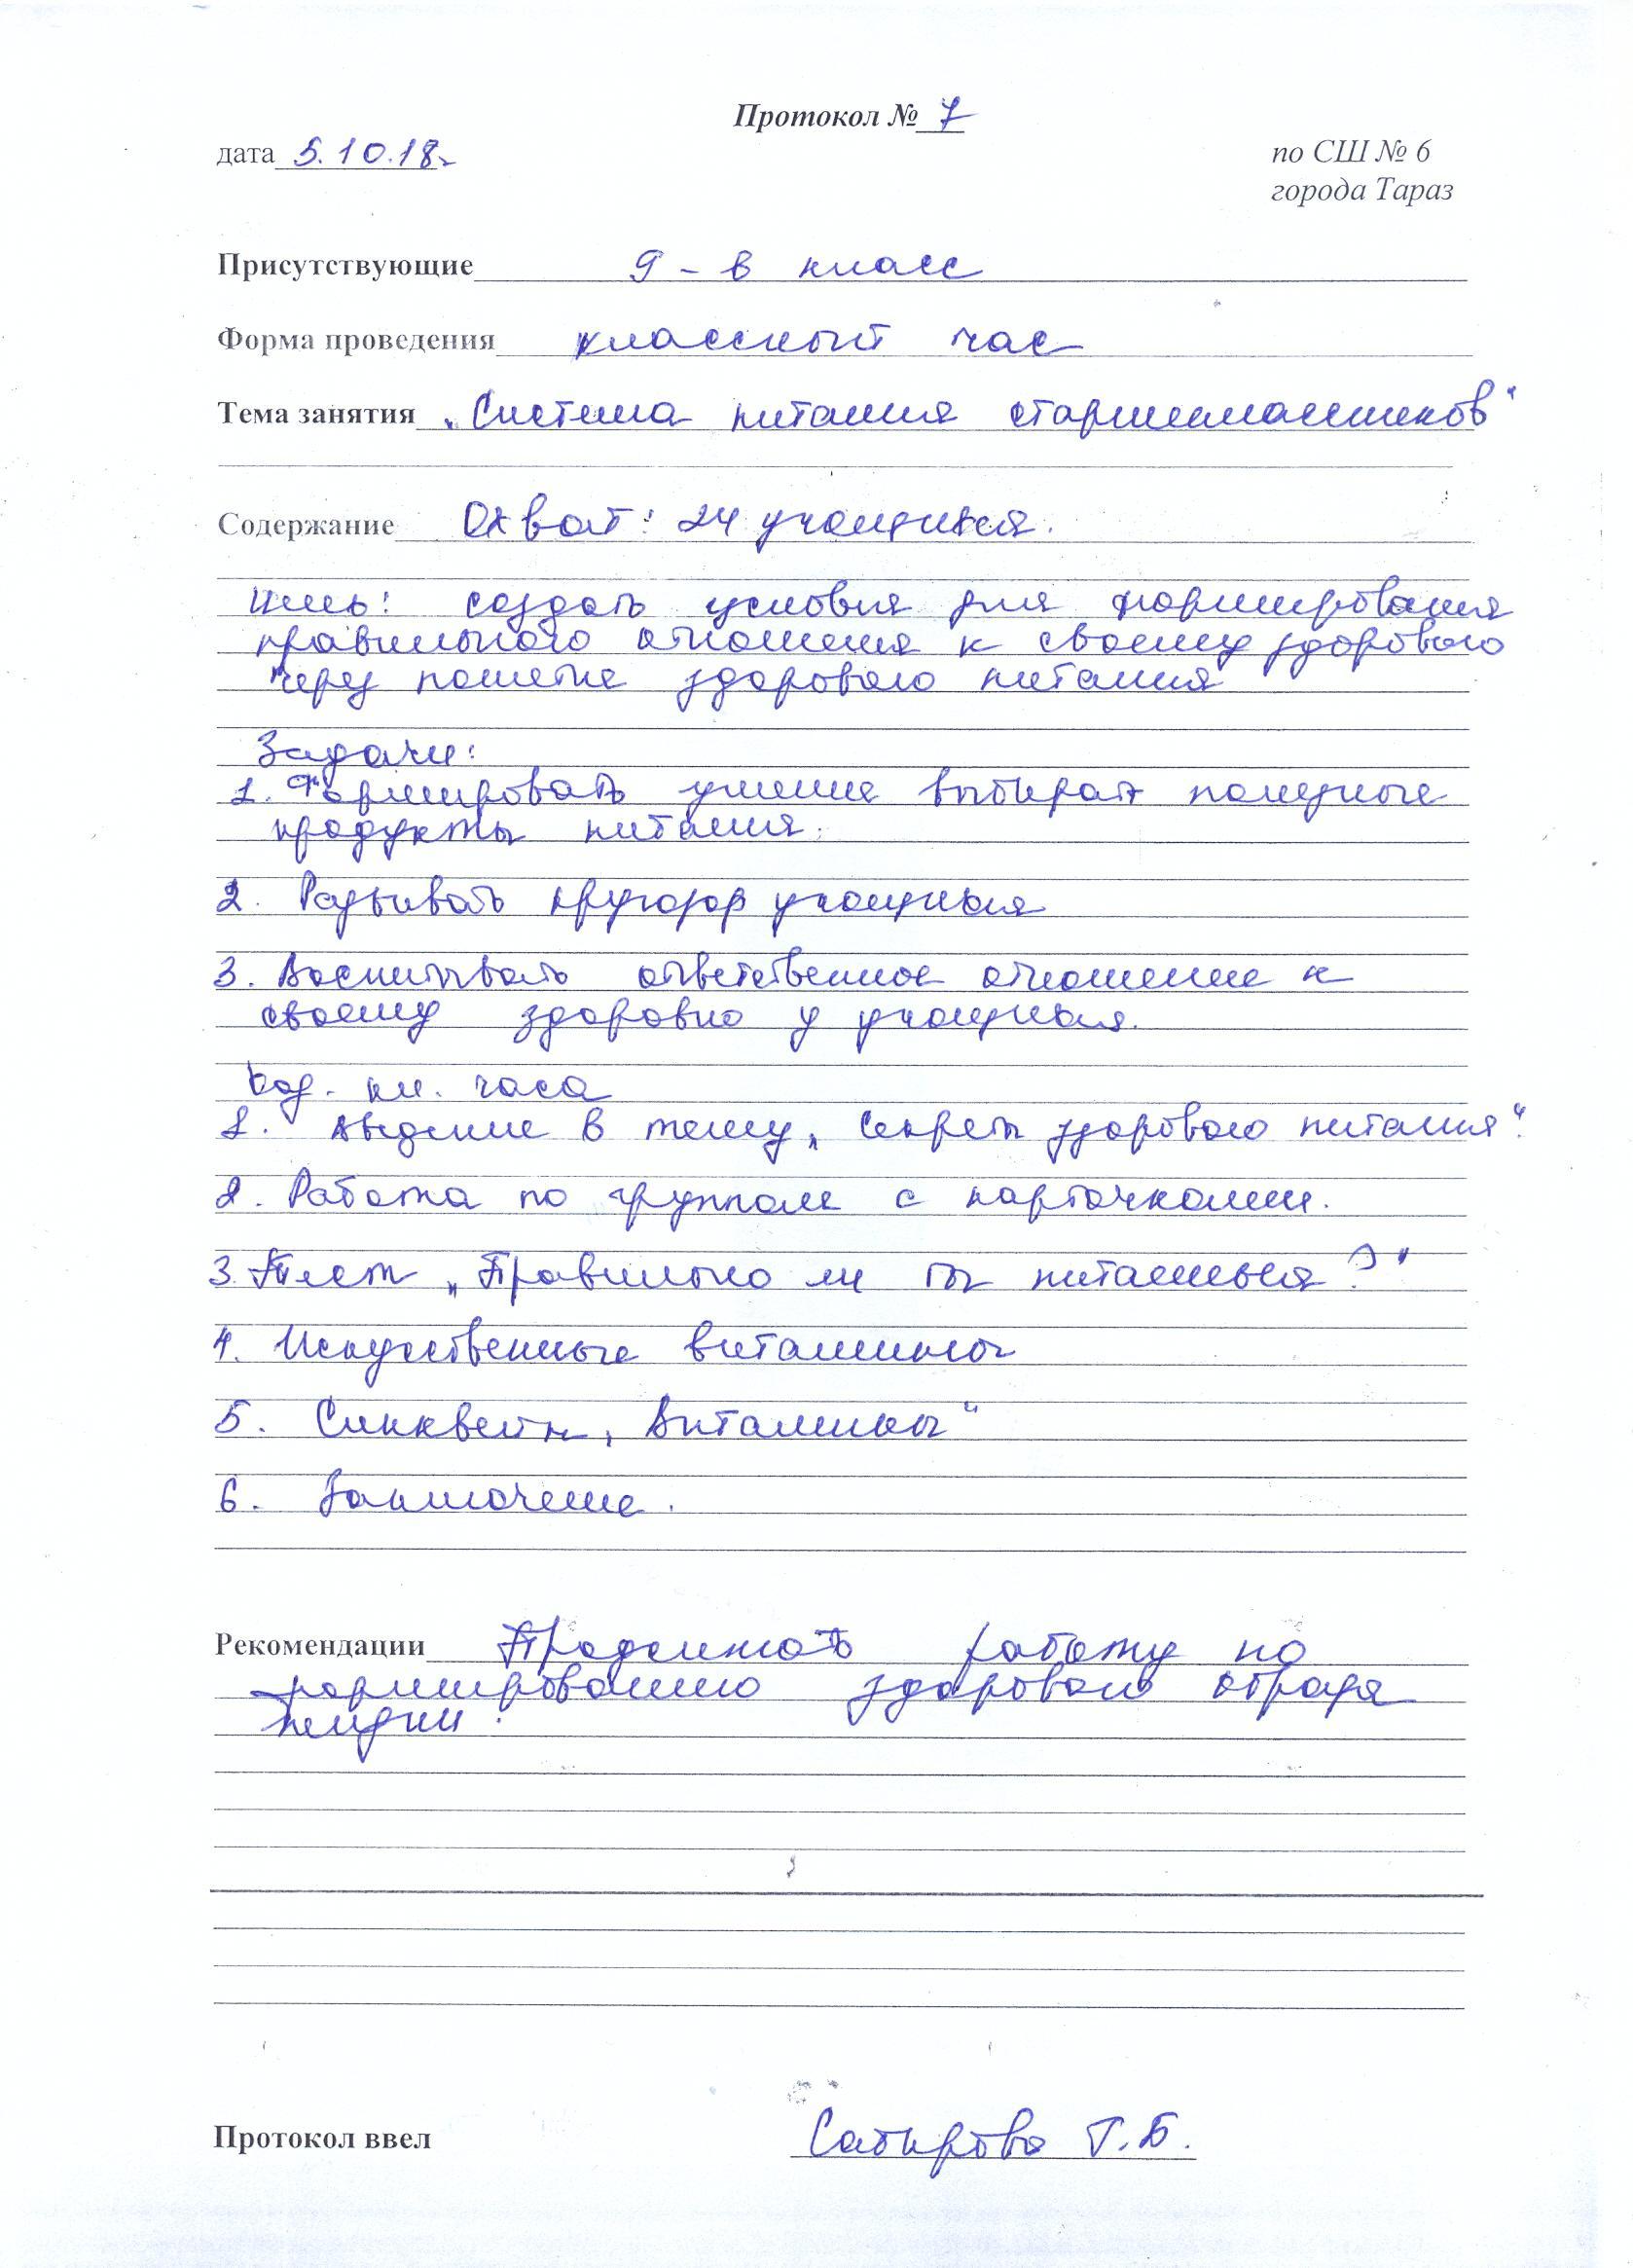 Протокол № 7
дата 5.10.18г
по СШ № 6
города Тараз
Присутствующие 9 - в класс
Форма проведения классный час
Тема занятия „Система питания старшеклассников"
Содержание Охват: 24 учащихся.
Цель: создать условия для формирования
правильного отношения к своему здоровью
через понятие здорового питания
Задачи:
1. Формировать умение выбирать полезные
продукты питания.
2. Развивать кругозор учащихся
3. Воспитывать ответственное отношение к
своему здоровью у учащихся.
Ход. кл. часа
1. Введение в тему „Секреты здорового питания".
2. Работа по группам с карточками.
3. Тест „Правильно ли ты питаешься?"
4. Искусственные витамины
5. Синквейн „Витамины"
6. Заключение.
Рекомендации Продолжать работу по
формированию здорового образа
жизни.
Протокол ввел Сабирова Г.Б.